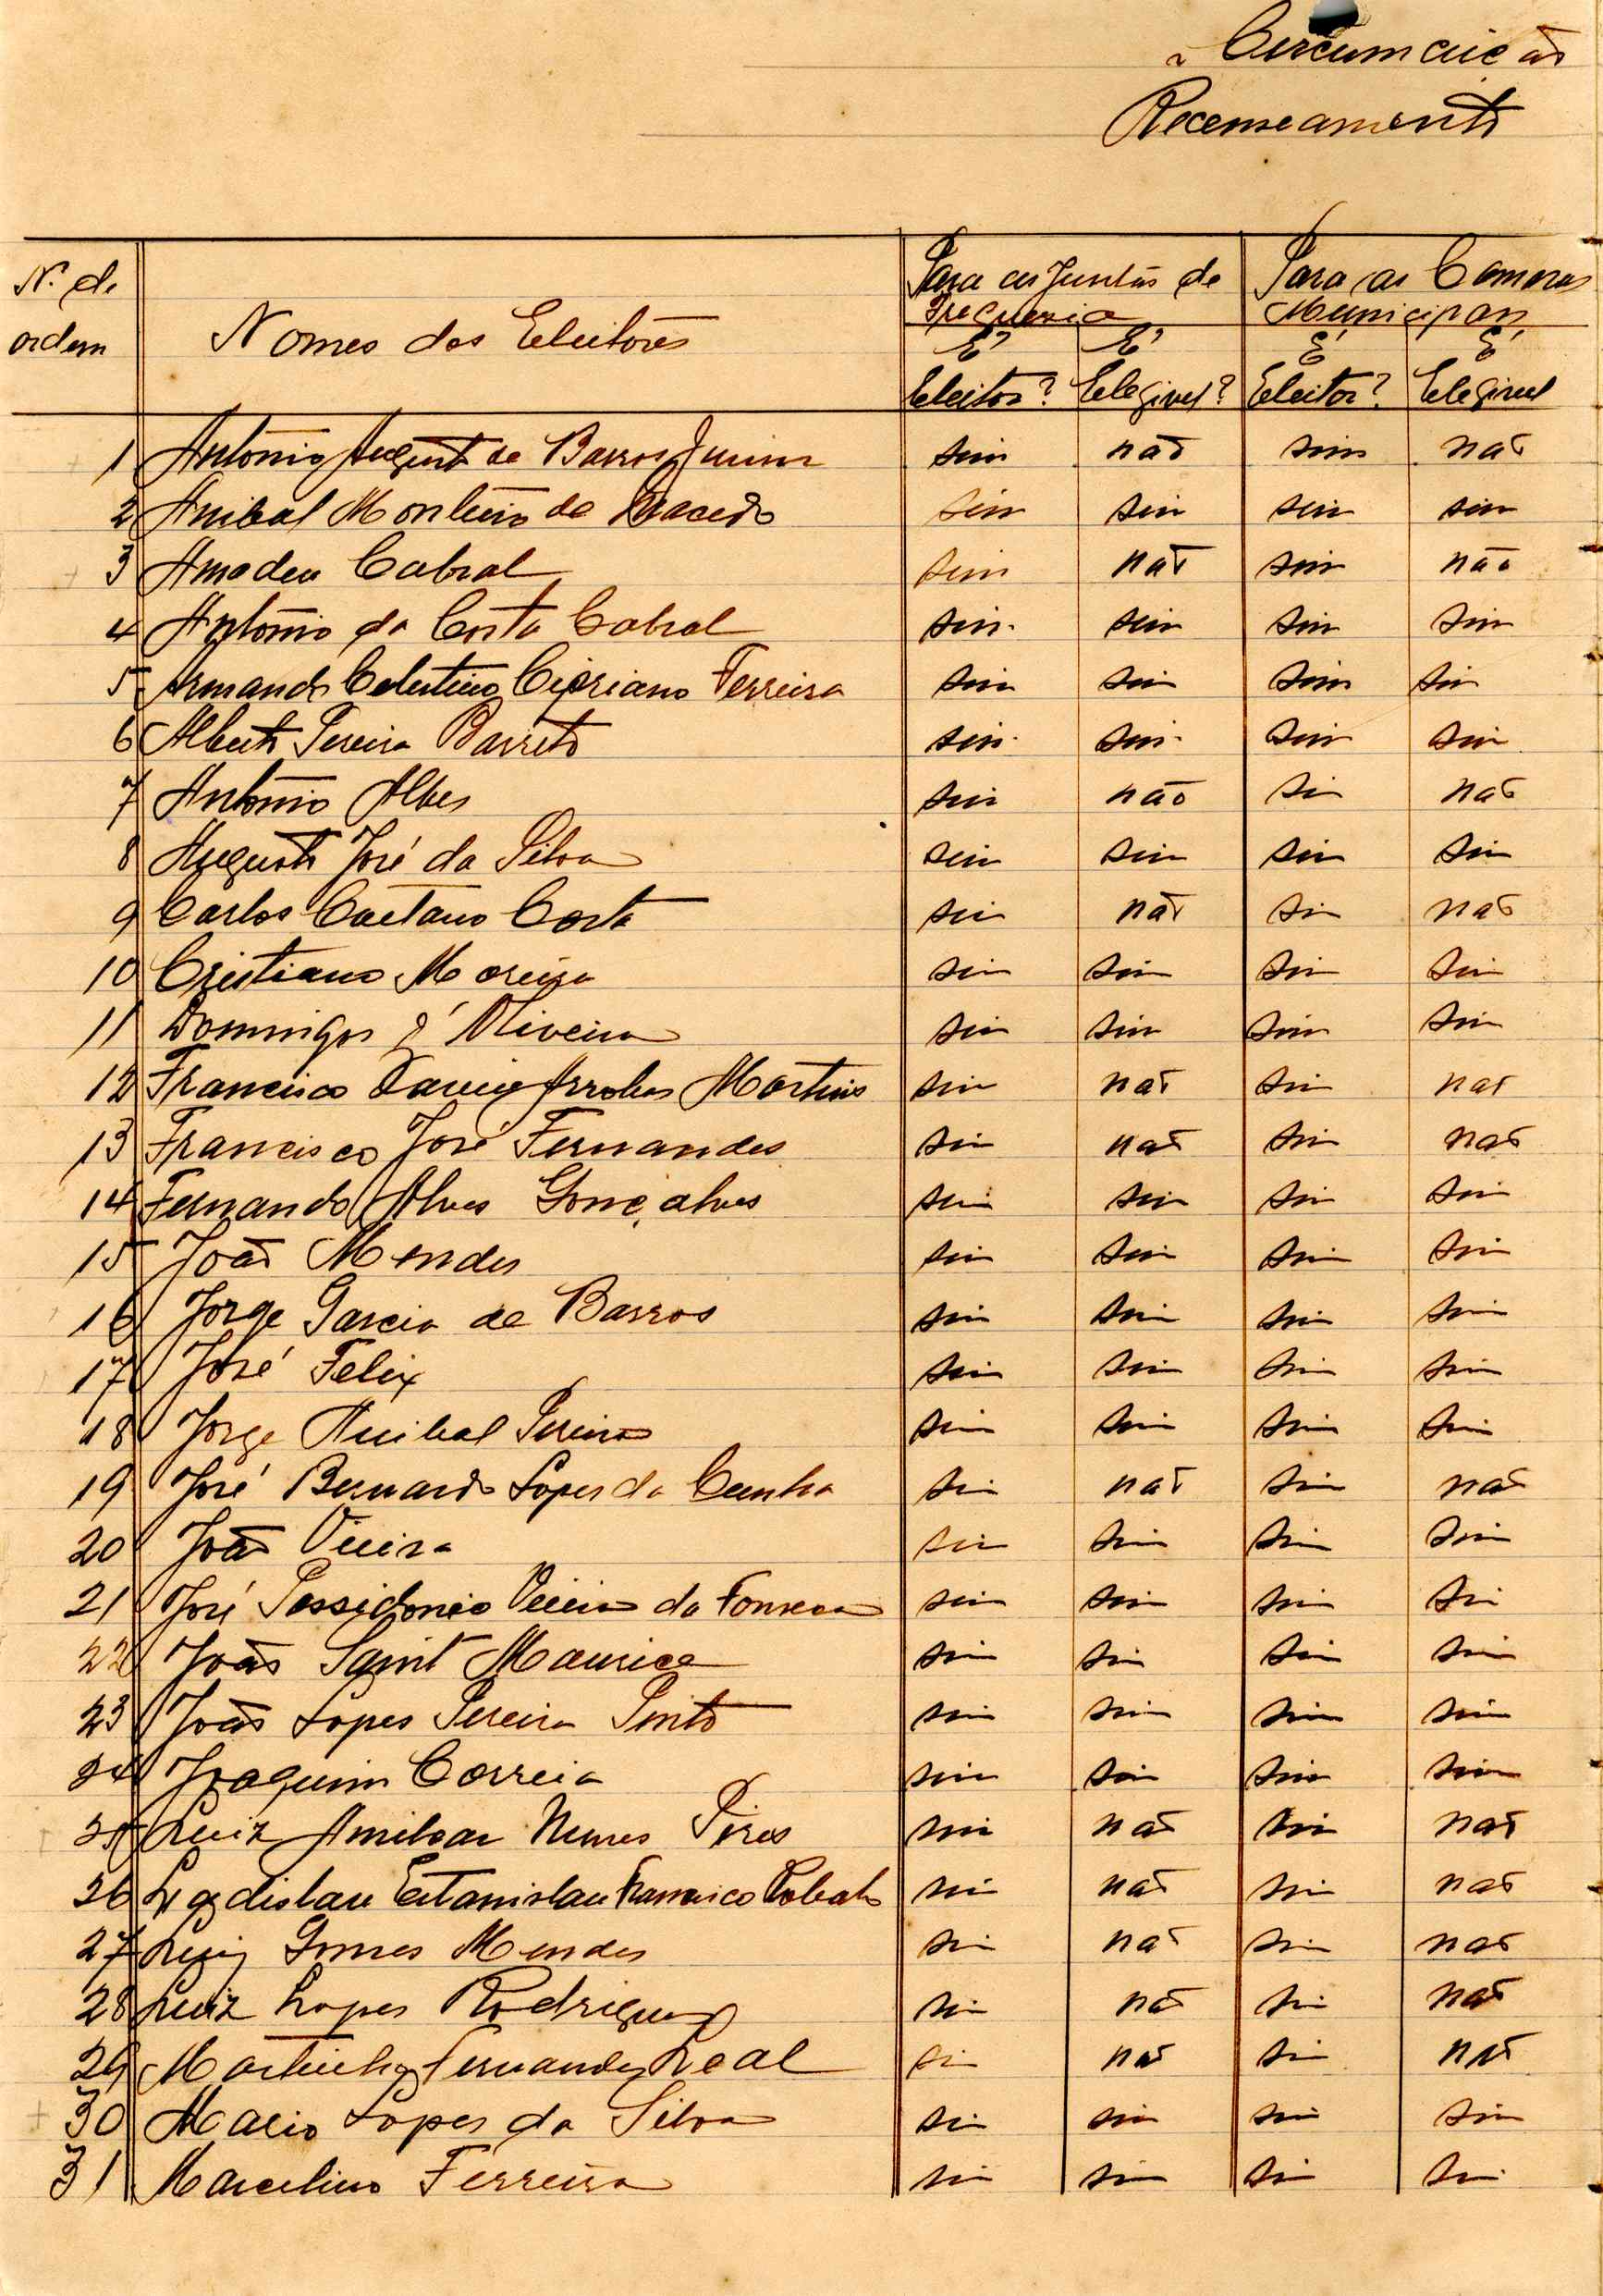 Circumscrição
Recenseamento
N. de ordem Nomes dos Eleitores Para as Juntas de Freguesia Para as Camaras Municipaes
É Eleitor? É Elegivel? É Eleitor? É Elegivel
1 António Augusto de Barros Junior sim não sim não
2 Anibal Monteiro de Macedo sim sim sim sim
3 Amadeu Cabral sim não sim não
4 António da Costa Cabral sim sim sim sim
5 Armando Celestino Cipriano Ferreira sim sim sim sim
6 Alberto Pereira Barreto sim sim sim sim
7 António Alves sim não sim não
8 Augusto José da Silva sim sim sim sim
9 Carlos Caetano Costa sim não sim não
10 Cristiano Moreira sim sim sim sim
11 Domingos d'Oliveira sim sim sim sim
12 Francisco Xavier Arrobas Martins sim não sim não
13 Francisco José Fernandes sim não sim não
14 Fernando Alves Gonçalves sim sim sim sim
15 João Mendes sim sim sim sim
16 Jorge Garcia de Barros sim sim sim sim
17 José Felix sim sim sim sim
18 Jorge Anibal Pereira sim sim sim sim
19 José Bernardo Lopes da Cunha sim não sim não
20 João Vieira sim sim sim sim
21 José Possidonio Vieira da Fonseca sim sim sim sim
22 João Saint Maurice sim sim sim sim
23 João Lopes Pereira Pinto sim sim sim sim
24 Joaquim Correia sim sim sim sim
25 Luiz Amilcar Nunes Pires sim não sim não
26 Ladislau Estanislau Francisco sim não sim não
27 Luiz Gomes Mendes sim não sim não
28 Luiz Lopes Rodrigues sim não sim não
29 Martinho Fernandes Leal sim não sim não
30 Mario Lopes da Silva sim sim sim sim
31 Marcelino Ferreira sim sim sim sim